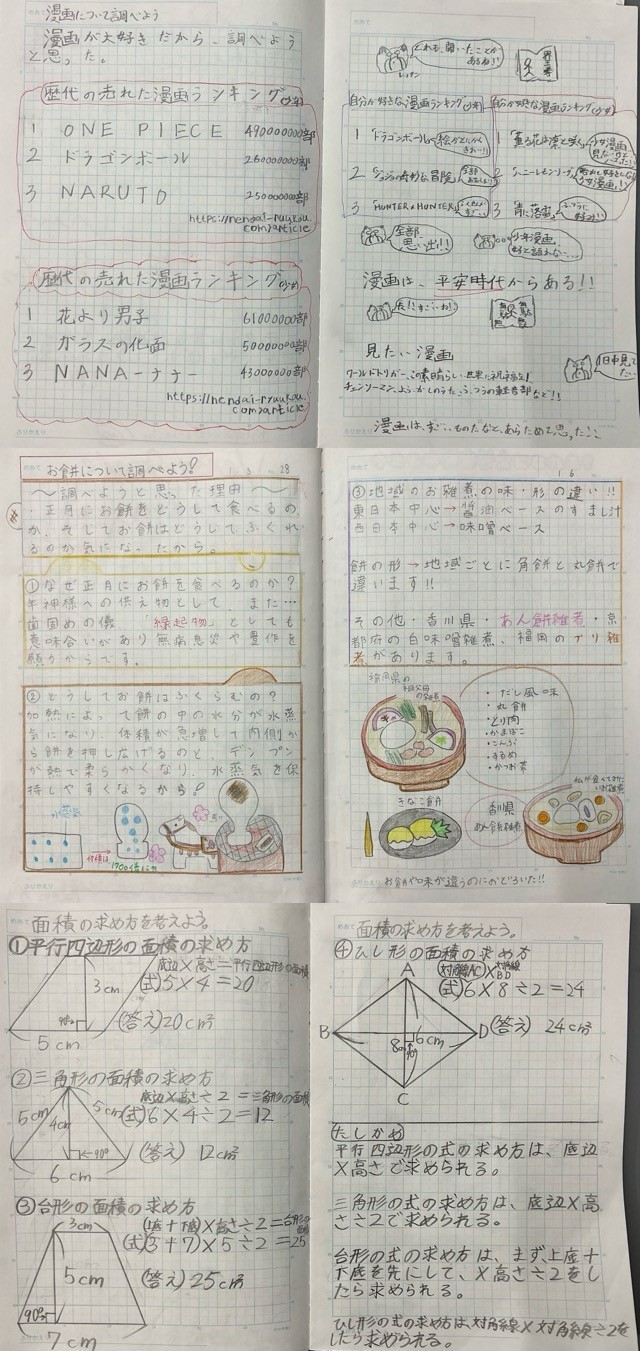 漫画について調べよう
漫画が大好きだから、調べよう
と思った。
歴代の売れた漫画ランキング(少年)
1 ONE PIECE 490000000部
2 ドラゴンボール 260000000部
3 NARUTO 250000000部
https://nendai-ryuukou.
com/article
歴代の売れた漫画ランキング(少女)
1 花より男子 61000000部
2 ガラスの仮面 50000000部
3 NANAーナナー 43000000部
https://nendai-ryuukou.
com/article
どれも、聞いたことが
あるね!!
自分が好きな漫画ランキング(少年)
1 ドラゴンボール
2 ジョジョの奇妙な冒険
3 HUNTER×HUNTER
自分が好きな漫画ランキング(少女)
1 薫る花は凛と咲く
2 ハニーレモンソーダ
3 青に落雷
全部
思い出!!
少年漫画
漫画は、平安時代からある!!
見たい漫画
ワールドトリガー、この素晴らしい世界に祝福を!
チェンソーマン、よふかしのうた、
漫画は、すごいものだなと、あらためて思った!!
お餅について調べよう!
1 28
〜調べようと思った理由〜
・正月にお餅をどうして食べるの
か、そしてお餅はどうしてふくれ
るのか気になったから。
①なぜ正月にお餅を食べるのか?
年神様への供え物として、また…
歯固めの儀「縁起物」としても
意味合いがあり無病息災や豊作を
願うからです。
②どうしてお餅はふくらむの?
加熱によって餅の中の水分が水蒸
気になり、体積が急増して内側か
ら餅を押し広げるのと、デンプン
が熱で柔らかくなり、水蒸気を保
持しやすくなるから!
1700倍に
1 6
③地域のお雑煮の味・形の違い!!
東日本中心→醤油ベースのすまし汁
西日本中心→味噌ベース
餅の形→地域ごとに角餅と丸餅で
違います!!
その他・香川県・あん餅雑煮・京
都府の白味噌雑煮、福岡のブリ雑
煮があります。
福岡県の
祖父母
の雑煮
・だし風味
・丸餅
・とり肉
・かまぼこ
・こんぶ
・するめ
・かつお菜
きなこ餅
香川県
あん餅雑煮
私が食べてみたい
お雑煮
お餅や味が違うのにおどろいた!!
面積の求め方を考えよう。
①平行四辺形の面積の求め方
底辺×高さ=平行四辺形の面積
3cm
(式)5×4=20
90°
(答え)20cm²
5cm
②三角形の面積の求め方
底辺×高さ÷2=三角形の面積
5cm 4cm 5cm
(式)6×4÷2=12
←90°
(答え)12cm²
6cm
③台形の面積の求め方
(上底+下底)×高さ÷2=台形の面積
3cm
(式)(3+7)×5÷2=25
5cm
(答え)25cm²
90°
7cm
面積の求め方を考えよう。
④ひし形の面積の求め方
対角線AC×対角線BD
A
(式)6×8÷2=24
B D
6cm
8cm
90°
(答え)24cm²
C
たしかめ
平行四辺形の式の求め方は、底辺
×高さで求められる。
三角形の式の求め方は、底辺×高
さ÷2で求められる。
台形の式の求め方は、まず、上底+
下底を先にして、×高さ÷2をし
たら求められる。
ひし形の式の求め方は、対角線×対角線÷2を
したら求められる。